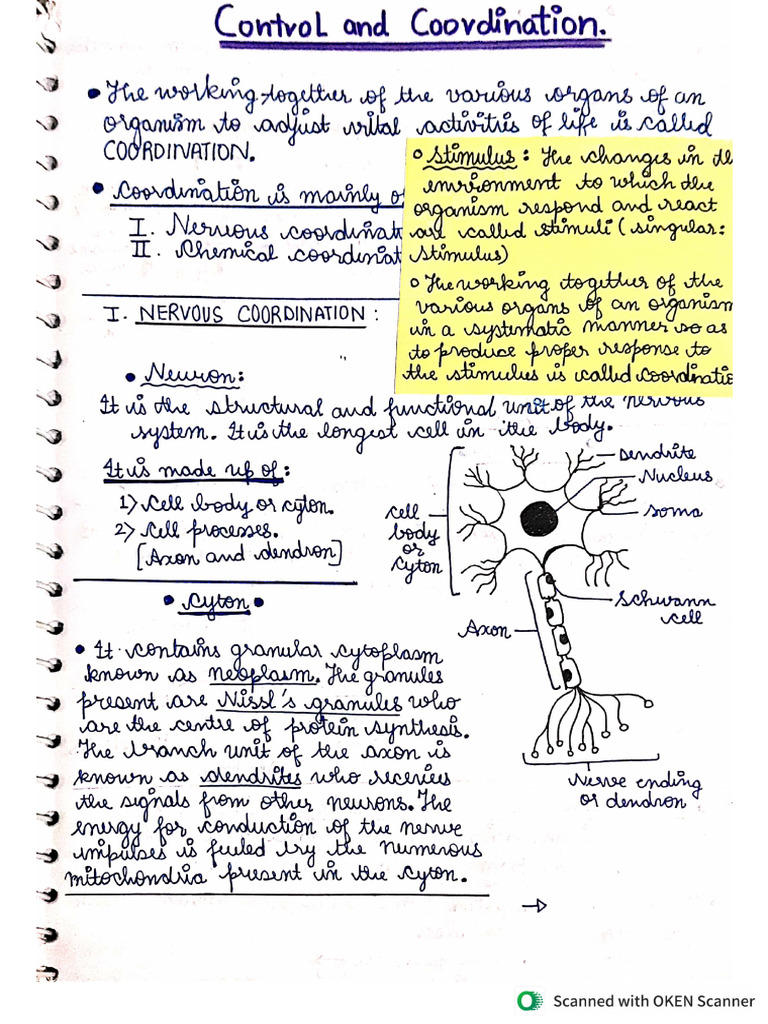 Control and Coordination.
• The working together of the various organs of an
organism to adjust vital activities of life is called
COORDINATION.
• Coordination is mainly of
I. Nervous coordinat
II. Chemical coordinat
◦ Stimulus: The changes in the
environment to which the
organism respond and react
are called stimuli (singular:
stimulus)
◦ The working together of the
various organs of an organism
in a systematic manner so as
to produce proper response to
the stimulus is called coordinatio
I. NERVOUS COORDINATION:
• Neuron:
It is the structural and functional unit of the nervous
system. It is the longest cell in the body.
It is made up of:
1) Cell body or cyton.
2) Cell processes.
[Axon and dendron]
Dendrite
Nucleus
Soma
Cell
body
or
Cyton
Schwann
cell
Axon
Nerve ending
or dendron
• Cyton •
• It contains granular cytoplasm
known as neoplasm. The granules
present are Nissl's granules who
are the centre of protein synthesis.
The branch unit of the axon is
known as dendrites who receives
the signals from other neurons. The
energy for conduction of the nerve
impulses is fueled by the numerous
mitochondria present in the cyton.
→
Scanned with OKEN Scanner